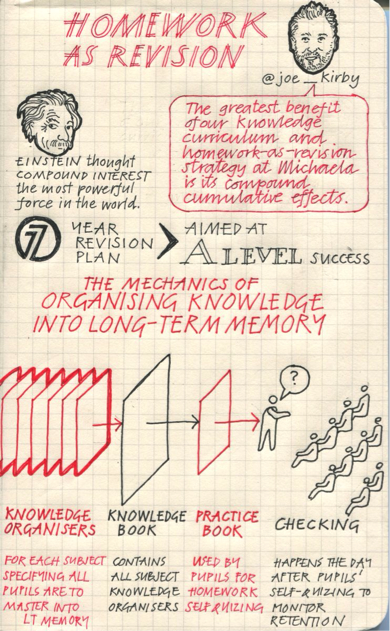 HOMEWORK
AS REVISION
@joe_kirby
The greatest benefit
of our knowledge
curriculum and
homework-as-revision
strategy at Michaela
is its compound,
cumulative effects.
EINSTEIN thought
COMPOUND INTEREST
the most powerful
force in the world.
7 YEAR
REVISION
PLAN
AIMED AT
A LEVEL SUCCESS
THE MECHANICS OF
ORGANISING KNOWLEDGE
INTO LONG-TERM MEMORY
?
KNOWLEDGE
ORGANISERS
FOR EACH SUBJECT
SPECIFYING ALL
PUPILS ARE TO
MASTER INTO
LT MEMORY
KNOWLEDGE
BOOK
CONTAINS
ALL SUBJECT
KNOWLEDGE
ORGANISERS
PRACTICE
BOOK
USED BY
PUPILS FOR
HOMEWORK
SELF QUIZZING
CHECKING
HAPPENS THE DAY
AFTER PUPILS'
SELF-QUIZING TO
MONITOR
RETENTION